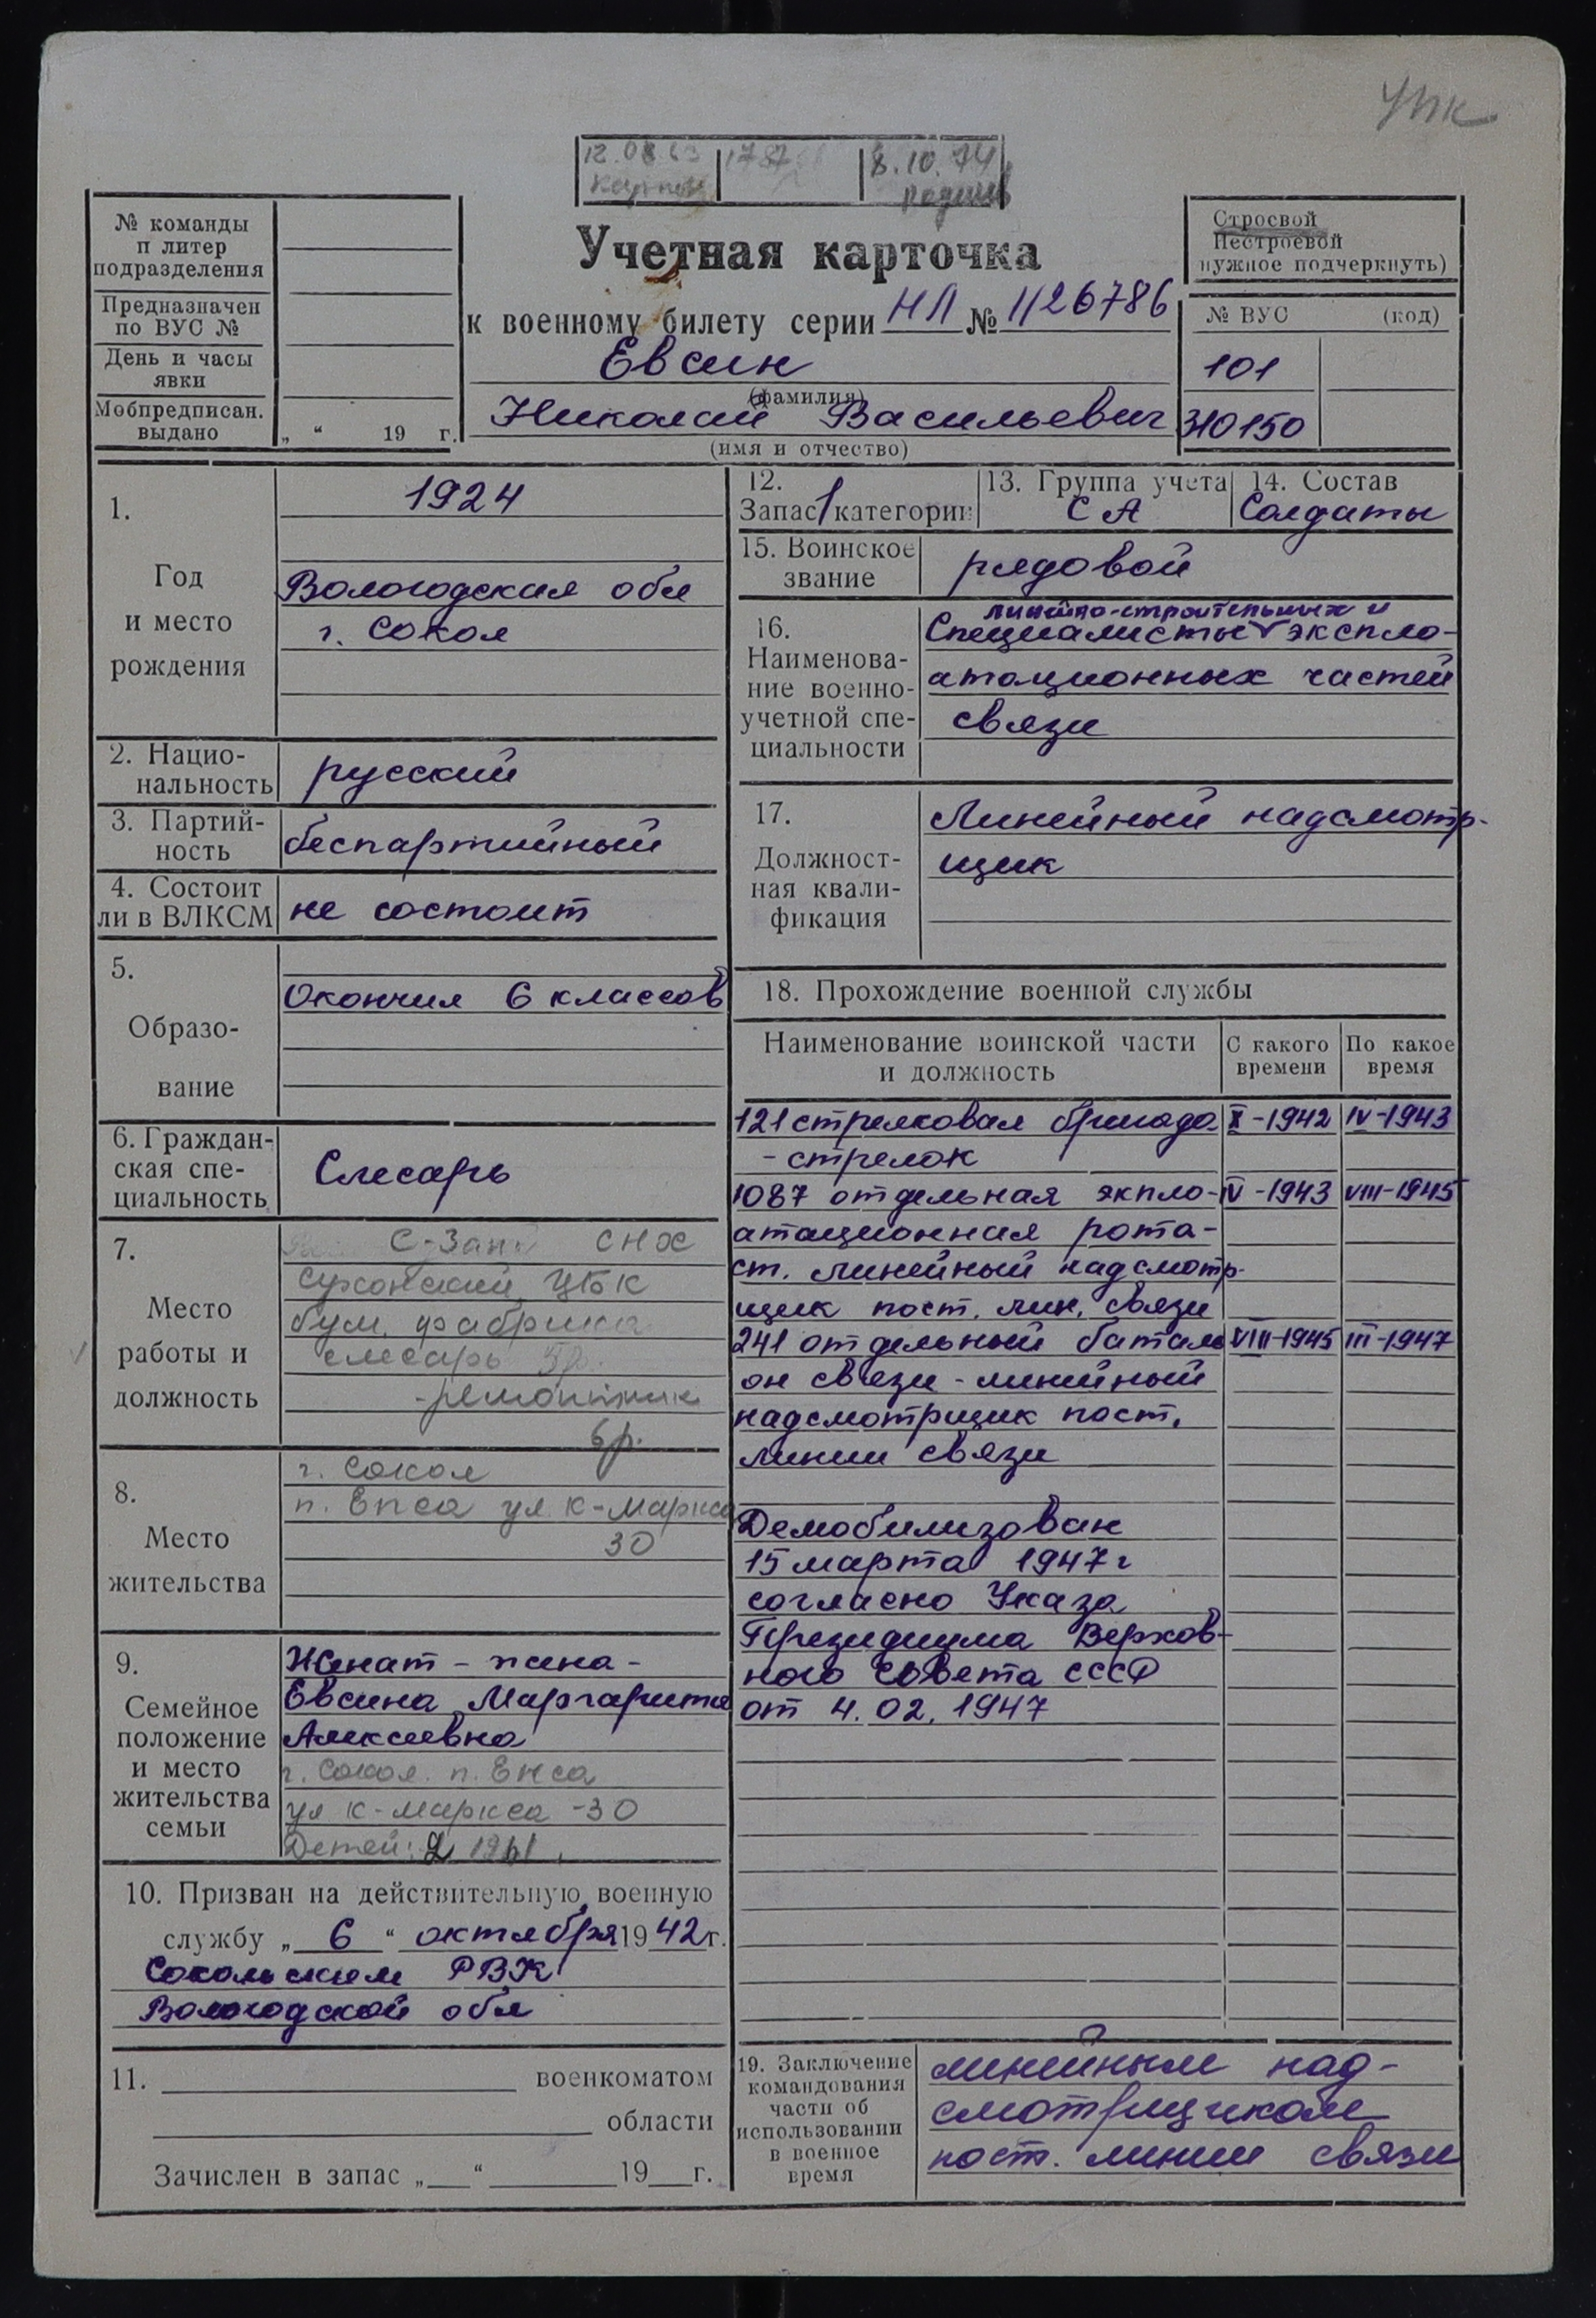 УПК
12.08.63 1787 8.10.74
№ команды
п литер
подразделения
Предназначен
по ВУС №
День и часы
явки
Мобпредписан.
выдано „ “ 19 г.
Учетная карточка
к военному билету серии НЛ № 1126786
Евсин
(фамилия)
Николай Васильевич
(имя и отчество)
Строевой
Нестроевой
нужное подчеркнуть)
№ ВУС (код)
101
310150
1.
Год
и место
рождения
1924
Вологодская обл
г. Сокол
2. Нацио-
нальность
русский
3. Партий-
ность
беспартийный
4. Состоит
ли в ВЛКСМ
не состоит
5.
Образо-
вание
Окончил 6 классов
6. Граждан-
ская спе-
циальность
Слесарь
7.
Место
работы и
должность
С-Зап СНХ
Сухонский ЦБК
бум. фабрика
слесарь
-ремонтник
6р.
8.
Место
жительства
г. Сокол
п. Енса ул. К-Маркса
30
9.
Семейное
положение
и место
жительства
семьи
Женат - жена -
Евсина Маргарита
Алексеевна
г. Сокол. п. Енса
ул К-Маркса -30
Детей: 2 1961
10. Призван на действительную военную
службу „ 6 “ октября 1942 г.
Сокольским РВК
Вологодской обл
11. военкоматом
области
Зачислен в запас „ “ 19 г.
12.
Запас 1 категории
13. Группа учета
СА
14. Состав
Солдаты
15. Воинское
звание
рядовой
16.
Наименова-
ние военно-
учетной спе-
циальности
линейно-строительных и
Специалисты экспло-
атационных частей
связи
17.
Должност-
ная квали-
фикация
Линейный надсмотр-
щик
18. Прохождение военной службы
Наименование воинской части
и должность
С какого
времени
По какое
время
121 стрелковая бригада X-1942 IV-1943
- стрелок
1087 отдельная экпло- IV-1943 VIII-1945
атационная рота-
ст. линейный надсмотр-
щик пост. лин. связи
241 отдельный баталь VIII-1945 III-1947
он связи - линейный
надсмотрщик пост.
линии связи
Демобилизован
15 марта 1947 г
согласно Указа
Президиума Верхов-
ного Совета СССР
от 4.02.1947
19. Заключение
командования
части об
использовании
в военное
время
линейным над-
смотрщиком
пост. линии связи